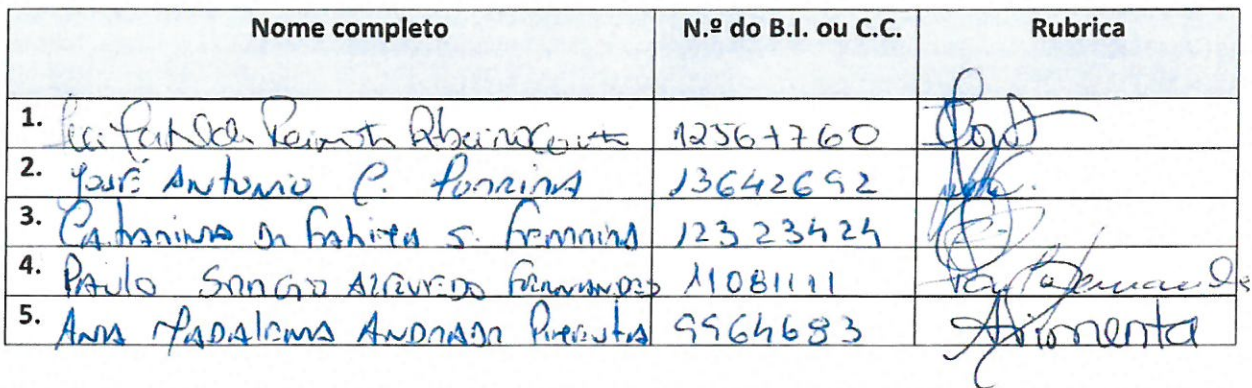 Nome completo N.º do B.I. ou C.C. Rubrica
1. 12567760
2. José Antonio P. Ferreira 13642692
3. Catarina de Fátima S. Ferreira 12323424
4. Paulo Sergio Azevedo Fernandes 11081111
5. Ana Madalena Andrade Pimenta 9964683 APimenta